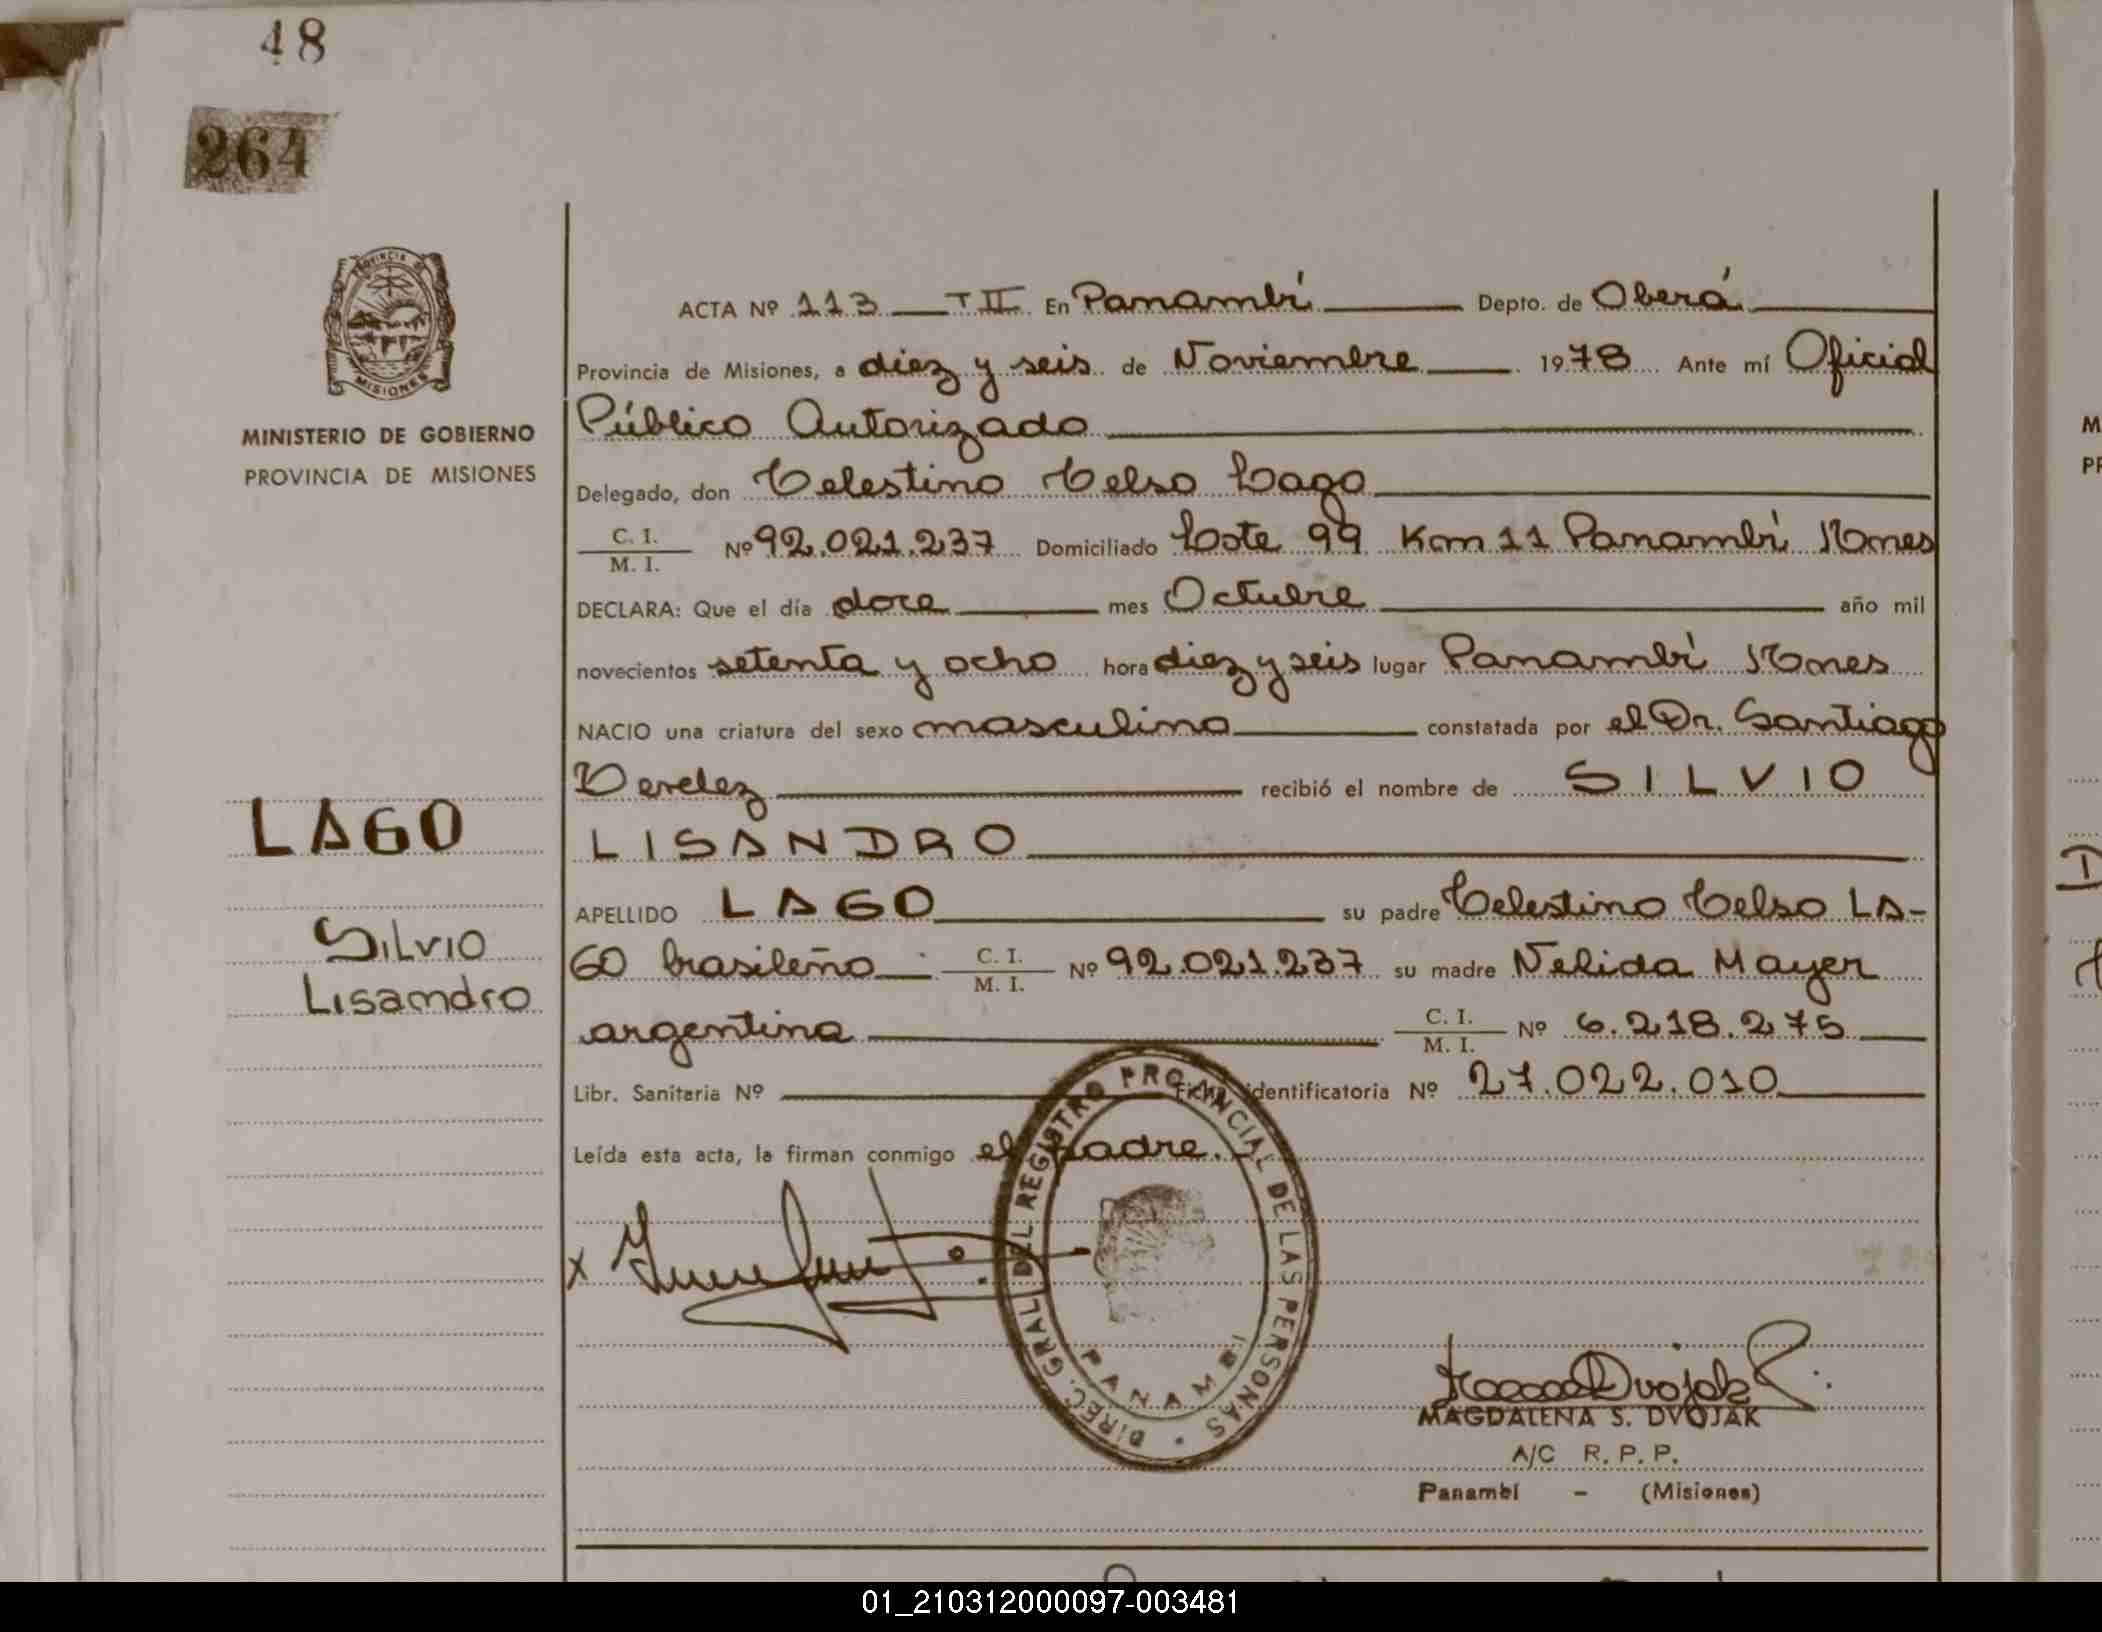 48
264
PROVINCIA DE
MISIONES
MINISTERIO DE GOBIERNO
PROVINCIA DE MISIONES
LAGO
Silvio
Lisandro
ACTA Nº 113 T II En Panambí Depto. de Oberá
Provincia de Misiones, a diez y seis de Noviembre 1978 Ante mí Oficial
Público Autorizado
Delegado, don Celestino Celso Lago
C. I.
M. I. Nº 92.021.237 Domiciliado Lote 99 Km 11 Panambí Mnes
DECLARA: Que el día doce mes Octubre año mil
novecientos setenta y ocho hora diez y seis lugar Panambí Mnes
NACIO una criatura del sexo masculino constatada por el Dr. Santiago
recibió el nombre de SILVIO
LISANDRO
APELLIDO LAGO su padre Celestino Celso LA-
GO brasileño C. I. M. I. Nº 92.021.237 su madre Nelida Mayer
argentina C. I. M. I. Nº 6.218.275
Libr. Sanitaria Nº Ficha identificatoria Nº 27.022.010
Leída esta acta, la firman conmigo el padre.
X
DIREC. GRAL DEL REGISTRO PROVINCIAL DE LAS PERSONAS
PANAMBI
MAGDALENA S. DVOJAK
A/C R. P. P.
Panambí - (Misiones)
01_210312000097-003481